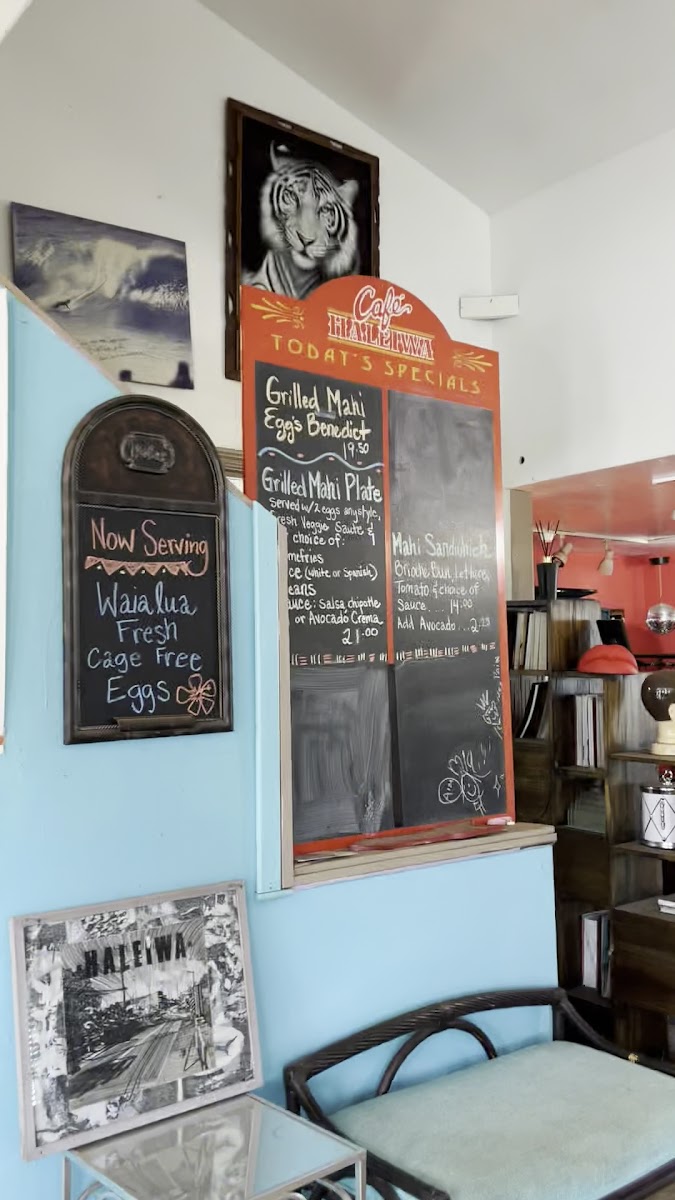 Café
HALEIWA
TODAY'S SPECIALS
Grilled Mahi
Egg's Benedict
19.50
Grilled Mahi Plate
served w/2 eggs any style,
Fresh Veggie Saute &
choice of:
ce (white or Spanish)
eans
auce: Salsa, chipotle
or Avocado Crema
21.00
Mahi Sandwhich
Brioche Bun, Lettuce,
Tomato & choice of
Sauce.... 14.00
Add Avocado...
Now Serving
Waialua
Fresh
Cage Free
Eggs
HALEIWA